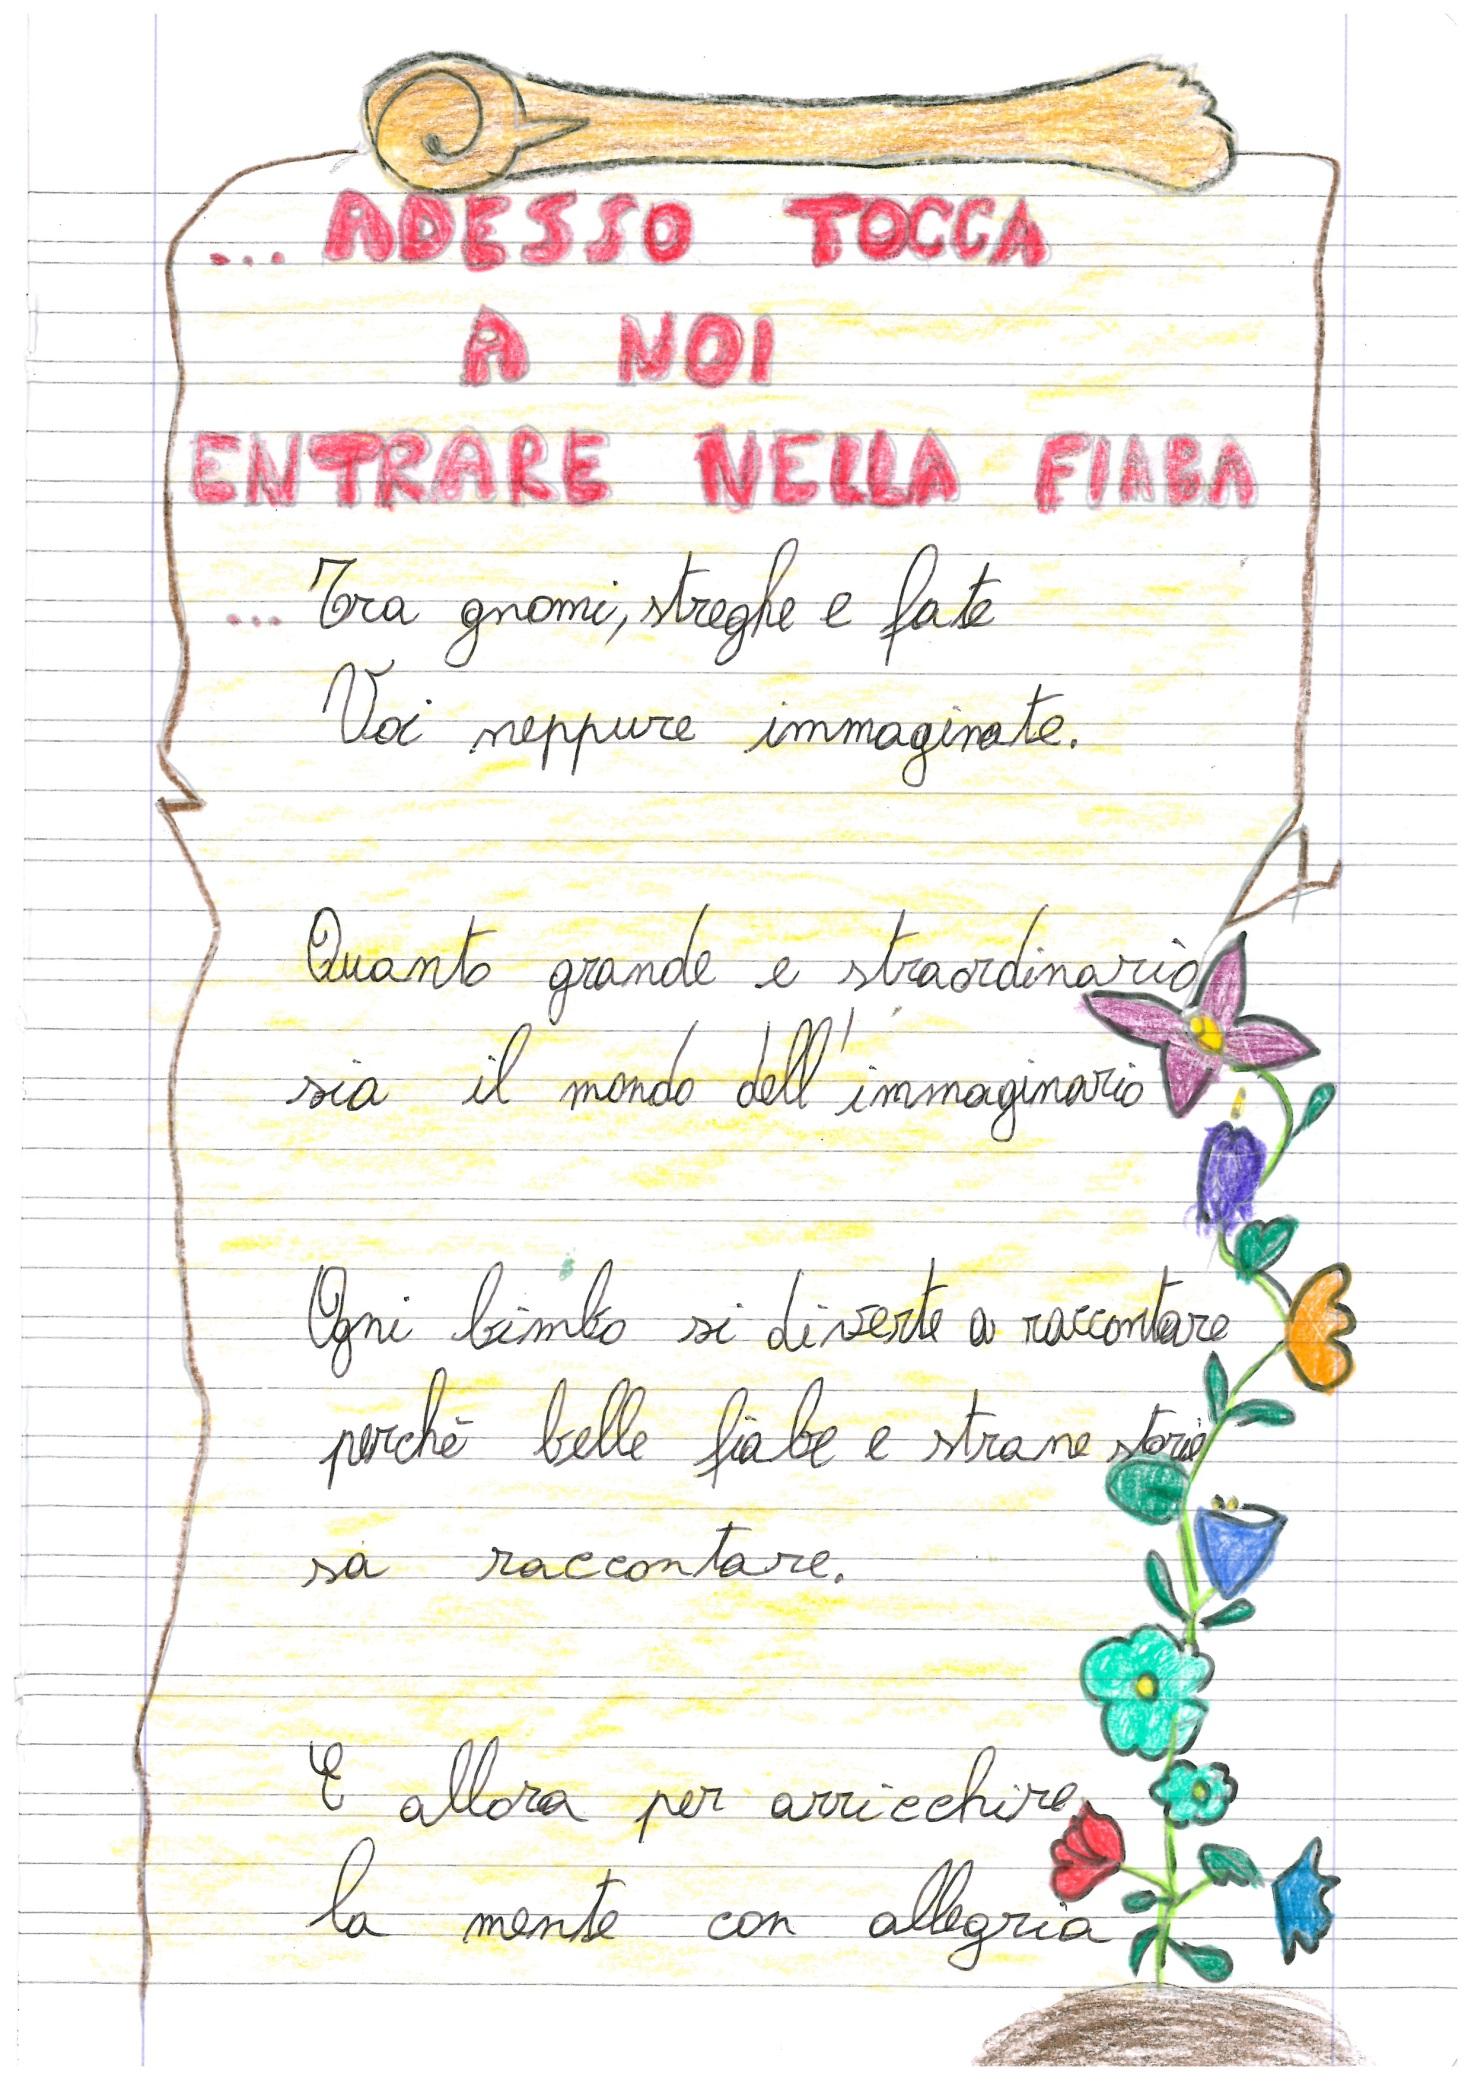 ... ADESSO TOCCA
A NOI
ENTRARE NELLA FIABA
... Tra gnomi, streghe e fate
Voi neppure immaginate.
Quanto grande e straordinario
sia il mondo dell'immaginario
Ogni bimbo si diverte a raccontare
perchè belle fiabe e strane storie
sa raccontare.
E allora per arricchire
la mente con allegria